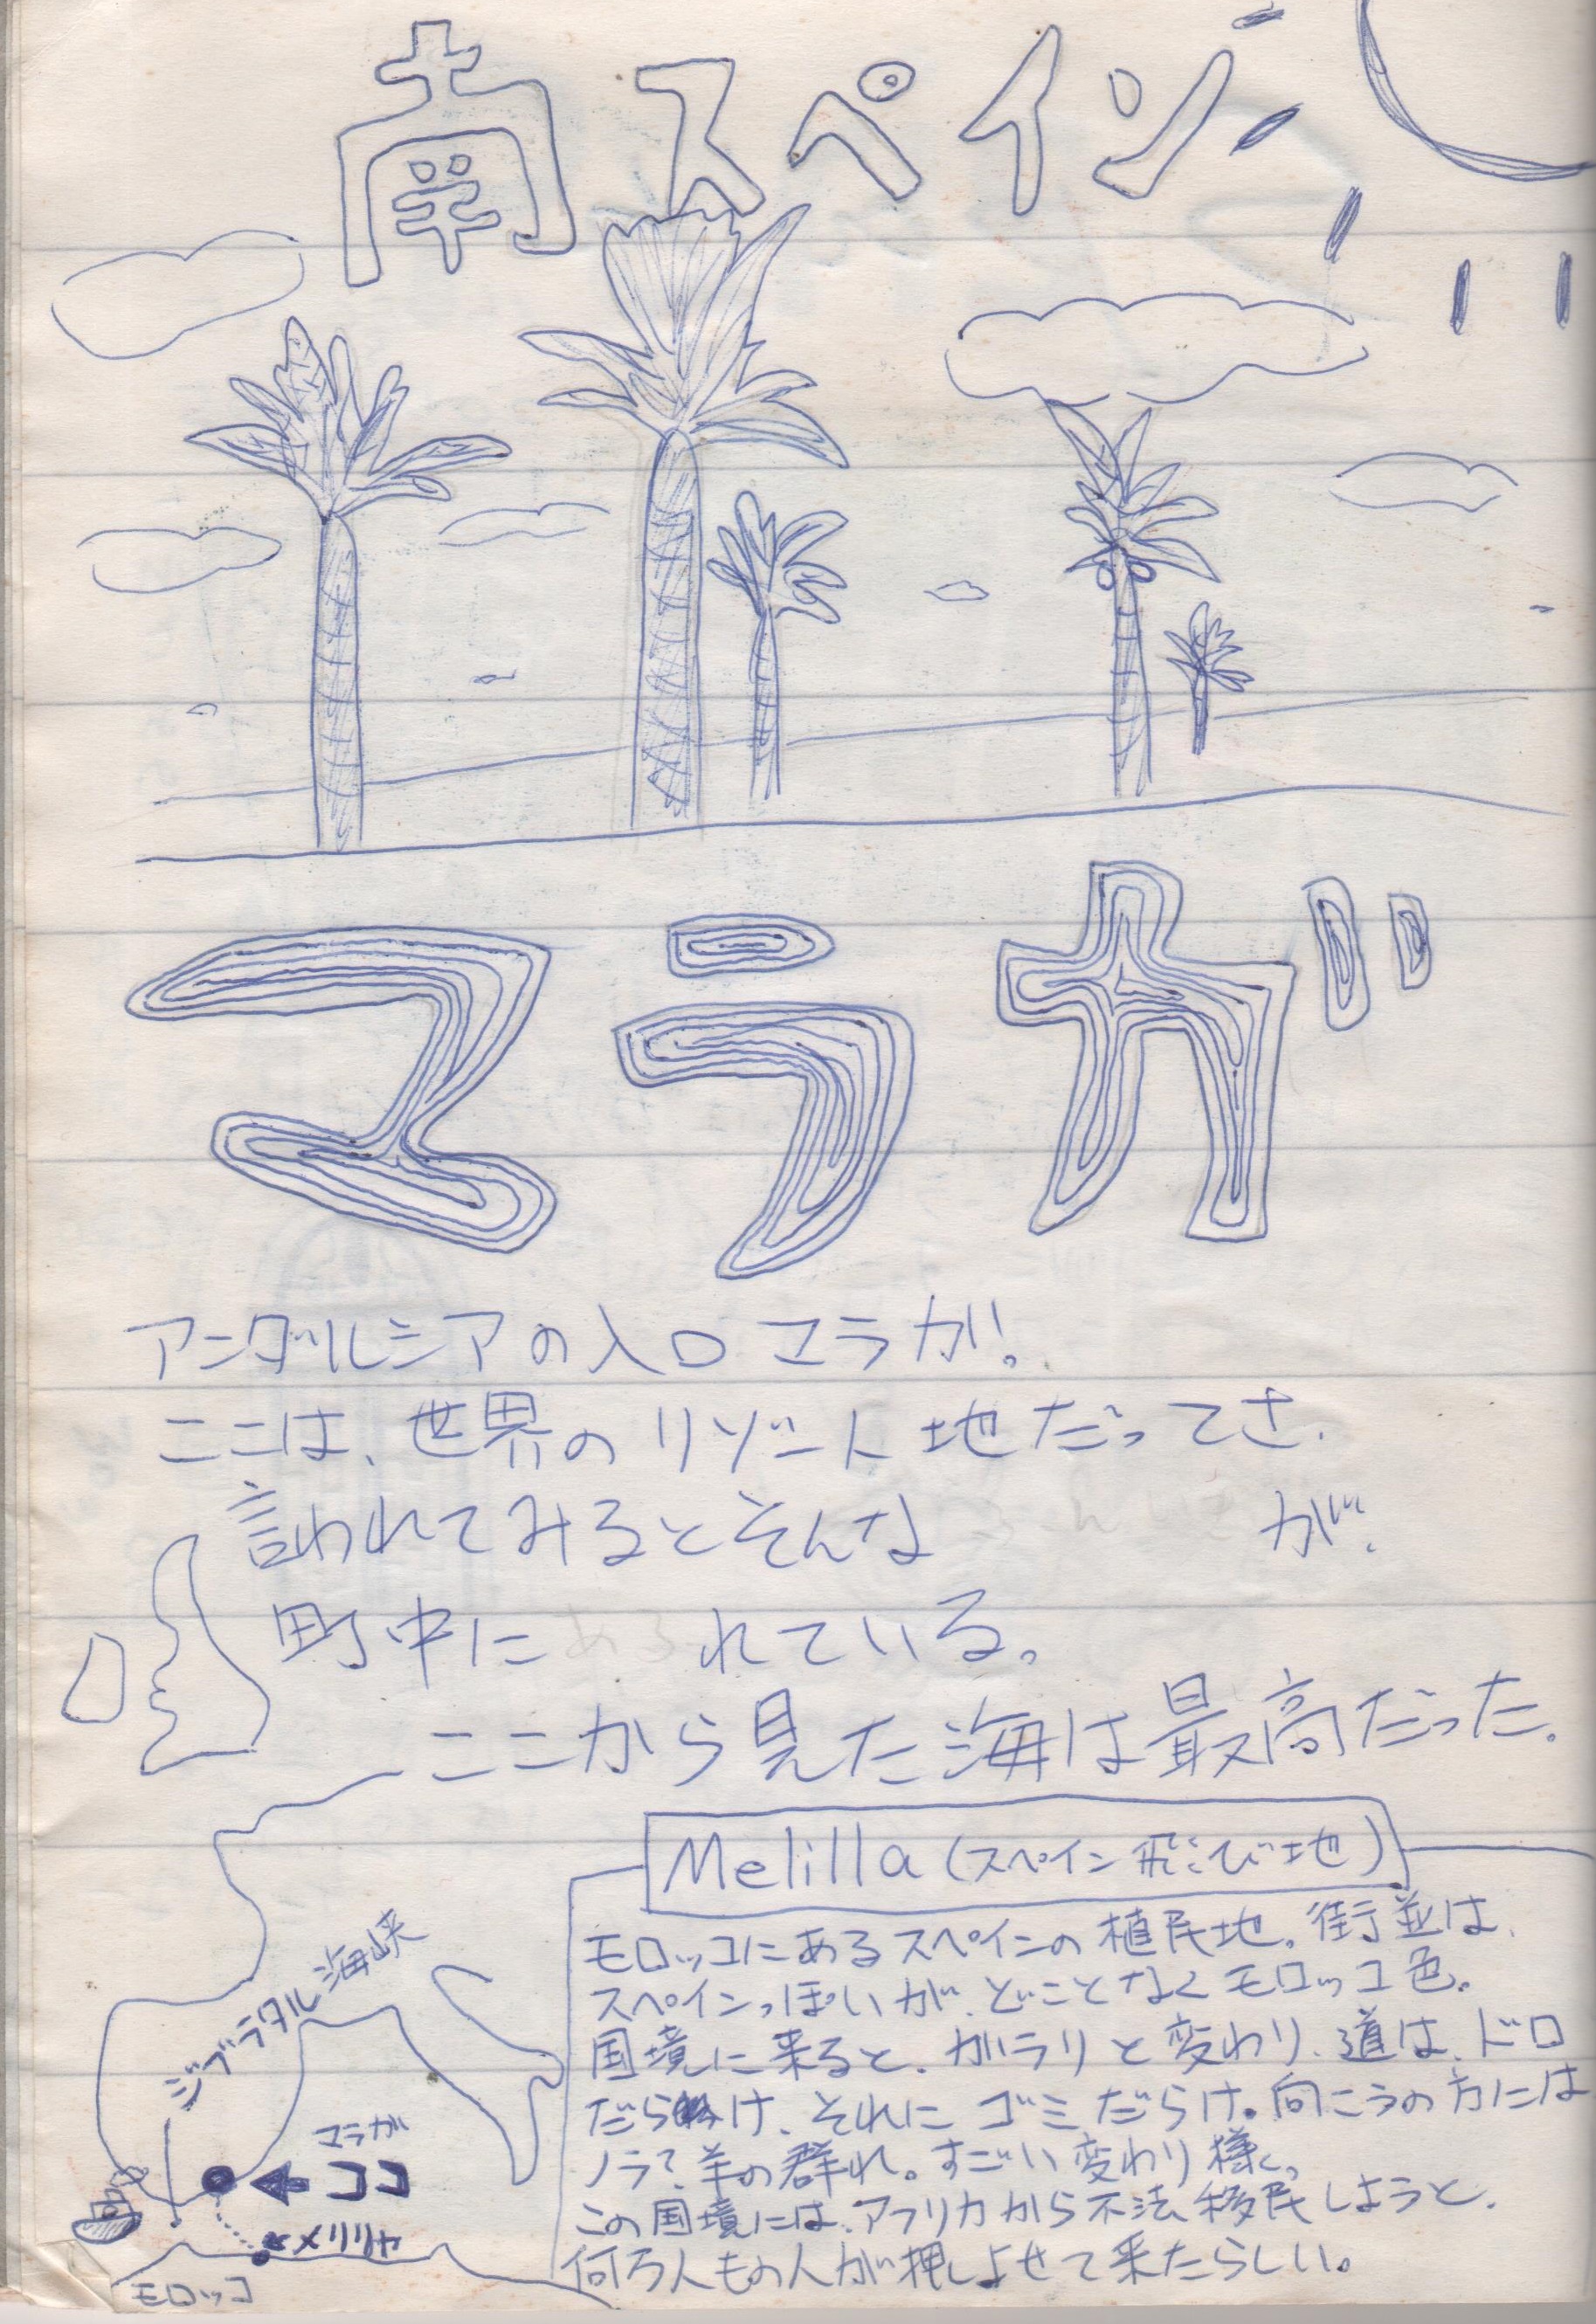 南スペイン
マラガ
アンダルシアの入口マラガ!
ここは、世界のリゾート地だってさ、
言われてみるとそんな が、
町中に れている。
ここから見た海は最高だった。
Melilla(スペイン飛び地)
モロッコにあるスペインの植民地。街並は、
スペインっぽいが、どことなくモロッコ色。
国境に来ると、ガラリと変わり、道は、ドロ
だらけ、それにゴミだらけ。向こうの方には
ノラ?羊の群れ。すごい変わり様。
この国境には、アフリカから不法移民しようと、
何万人もの人が押しよせて来たらしい。
ジブラタル海峡
マラガ
ココ
メリリャ
モロッコ